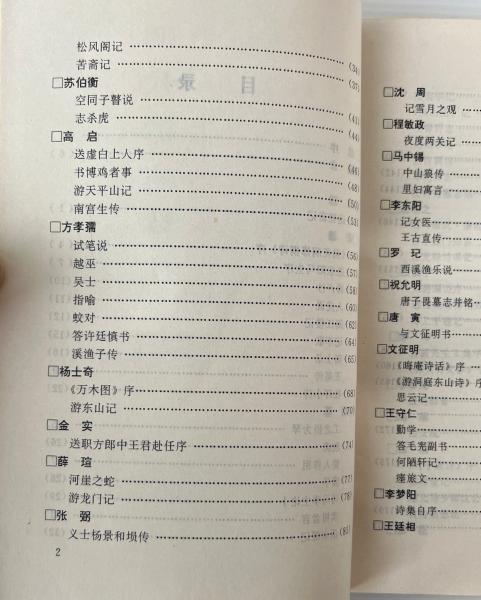 松风阁记 (34)
苦斋记 (37)
□苏伯衡
空同子瞽说 (41)
志杀虎 (44)
□高　启
送虚白上人序 (46)
书博鸡者事 (48)
游天平山记 (50)
南宫生传 (53)
□方孝孺
试笔说 (56)
越巫 (57)
吴士 (58)
指喻 (60)
蚊对 (62)
答许廷慎书 (64)
溪渔子传 (65)
□杨士奇
《万木图》序 (68)
游东山记 (70)
□金　实
送职方郎中王君赴任序 (74)
□薛　瑄
河崖之蛇 (77)
游龙门记 (78)
□张　弼
义士杨景和埙传 (83)
2
□沈　周
记雪月之观
□程敏政
夜度两关记
□马中锡
中山狼传
里妇寓言
□李东阳
记女医
王古直传
□罗　玘
西溪渔乐说
□祝允明
唐子畏墓志并铭
□唐　寅
与文征明书
□文征明
《晦庵诗话》序
《游洞庭东山诗》序
思云记
□王守仁
勤学
答毛宪副书
何陋轩记
瘗旅文
□李梦阳
诗集自序
□王廷相